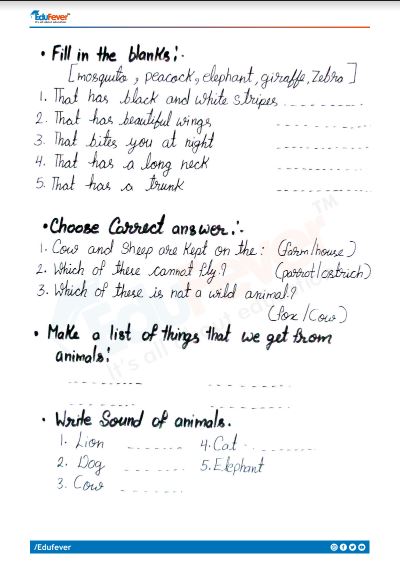 EduFever
• Fill in the blanks:-
[mosquito, peacock, elephant, giraffe, Zebra]
1. That has black and white stripes
2. That has beautiful wings
3. That bites you at night
4. That has a long neck
5. That has a trunk
• Choose Correct answer:-
1. Cow and Sheep are kept on the: (farm/house)
2. Which of there cannot fly? (parrot/ostrich)
3. Which of these is not a wild animal?
(fox/Cow)
• Make a list of things that we get from
animals:
• Write Sound of animals.
1. Lion 4. Cat
2. Dog 5. Elephant
3. Cow
/Edufever